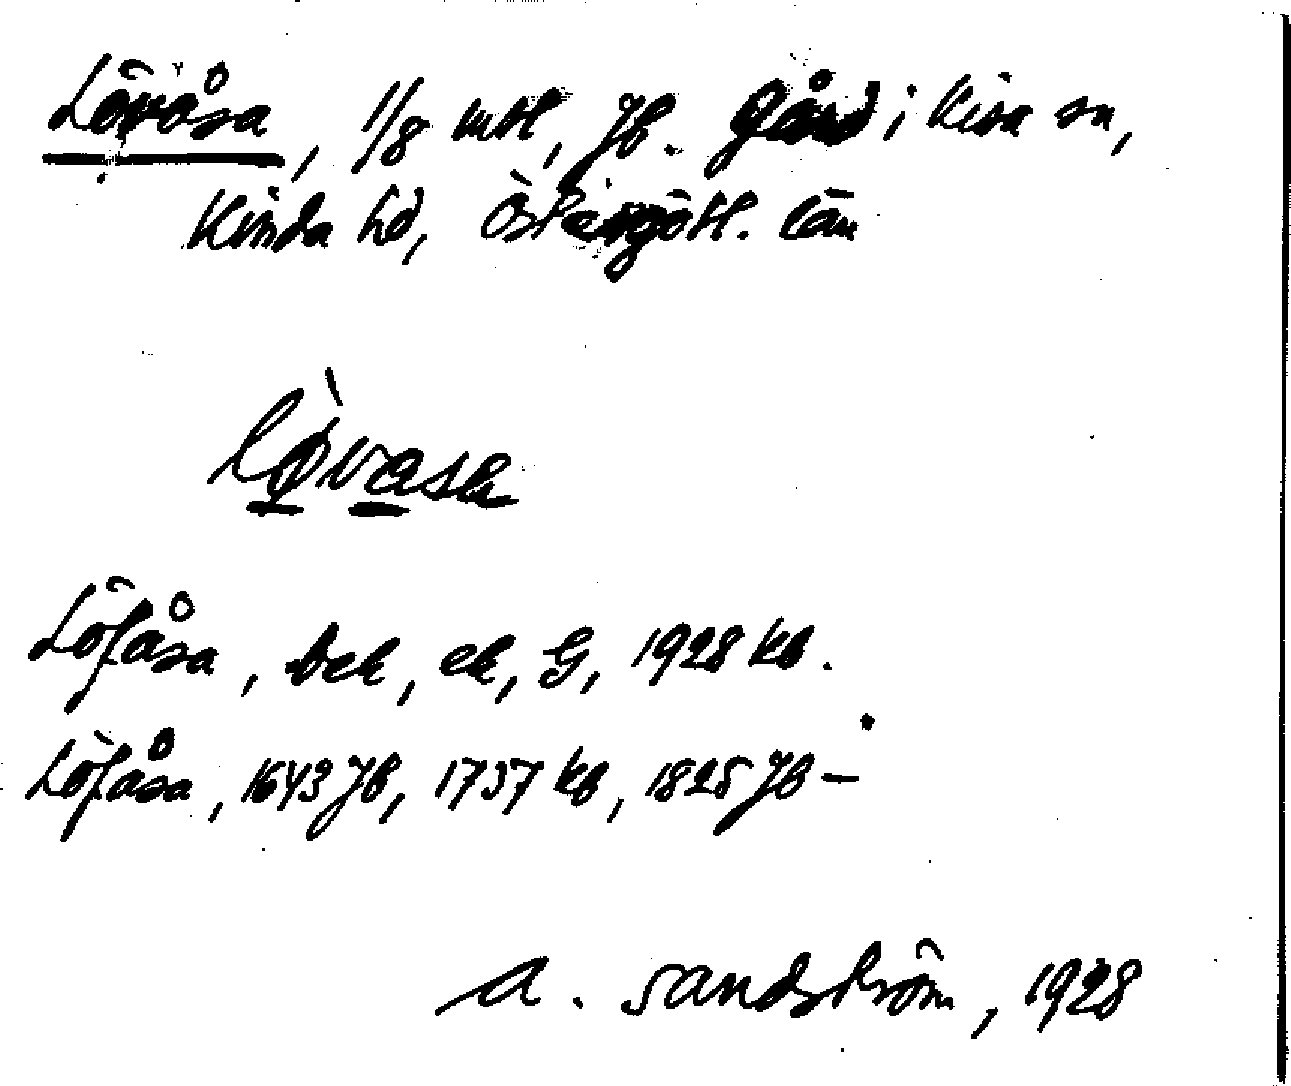 Lövåsa, 1/8 mtl, Jb. Gård i Kisa sn,
Kinda hd, Östergötl. län
Löfåsa, bek, ek, G, 1928 kb.
Löfåsa, 1643 Jb, 1737 kb, 1825 Jb —
A. Sandström, 1928